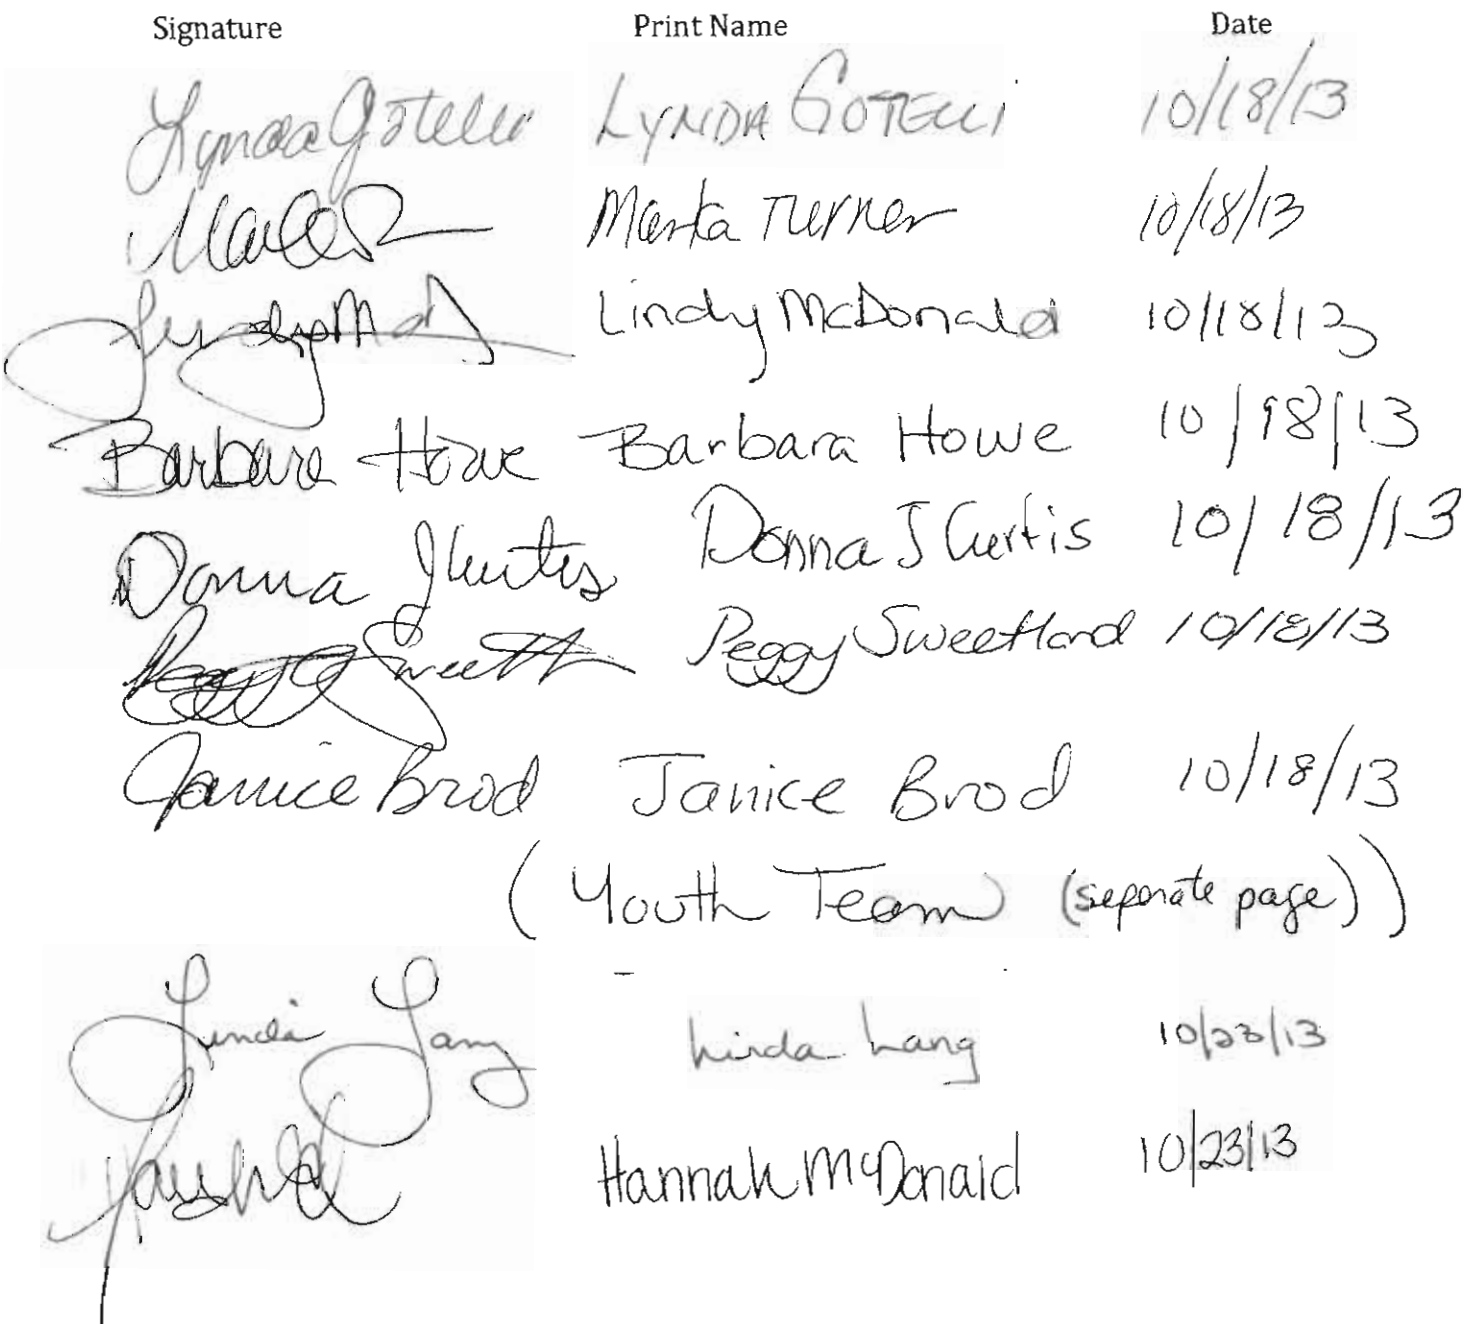 Signature Print Name Date
Lynda Gotelli LYNDA GOTELLI 10/18/13
Marta Turner 10/18/13
Lindy McDonald 10/18/13
Barbara Howe Barbara Howe 10/18/13
Donna J Curtis Donna J Curtis 10/18/13
Peggy Sweetland 10/18/13
Janice Brod Janice Brod 10/18/13
(Youth Team (separate page))
Linda Lang Linda Lang 10/23/13
Hannah McDonald 10/23/13